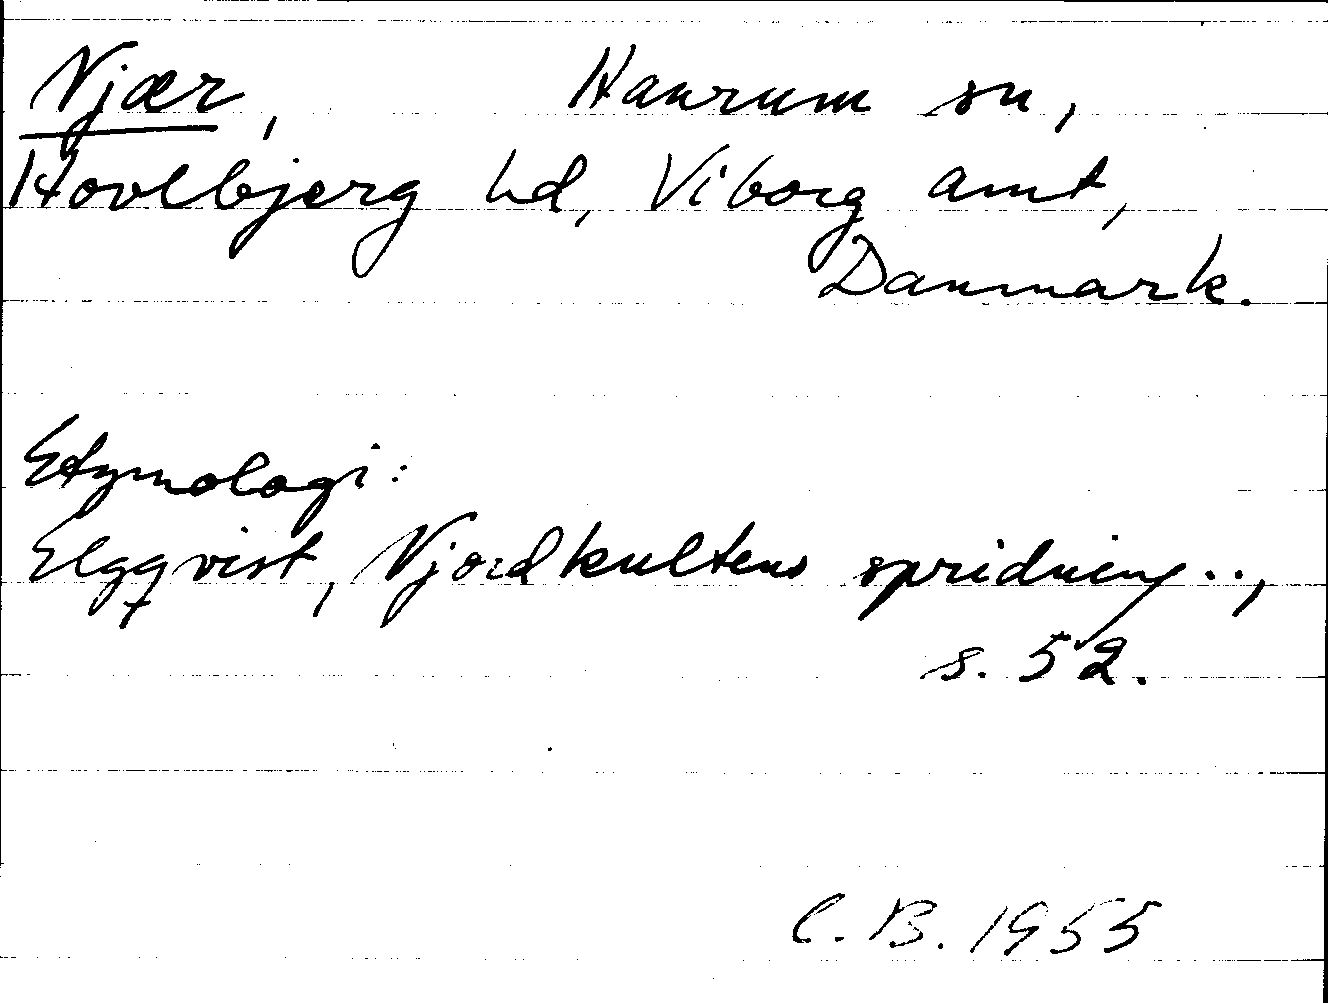 Njær, Haurum sn,
Hovlbjerg hd, Viborg amt,
Danmark.
Etymologi:
Elgqvist, Njordkultens spridning..,
s. 52.
C.B. 1955